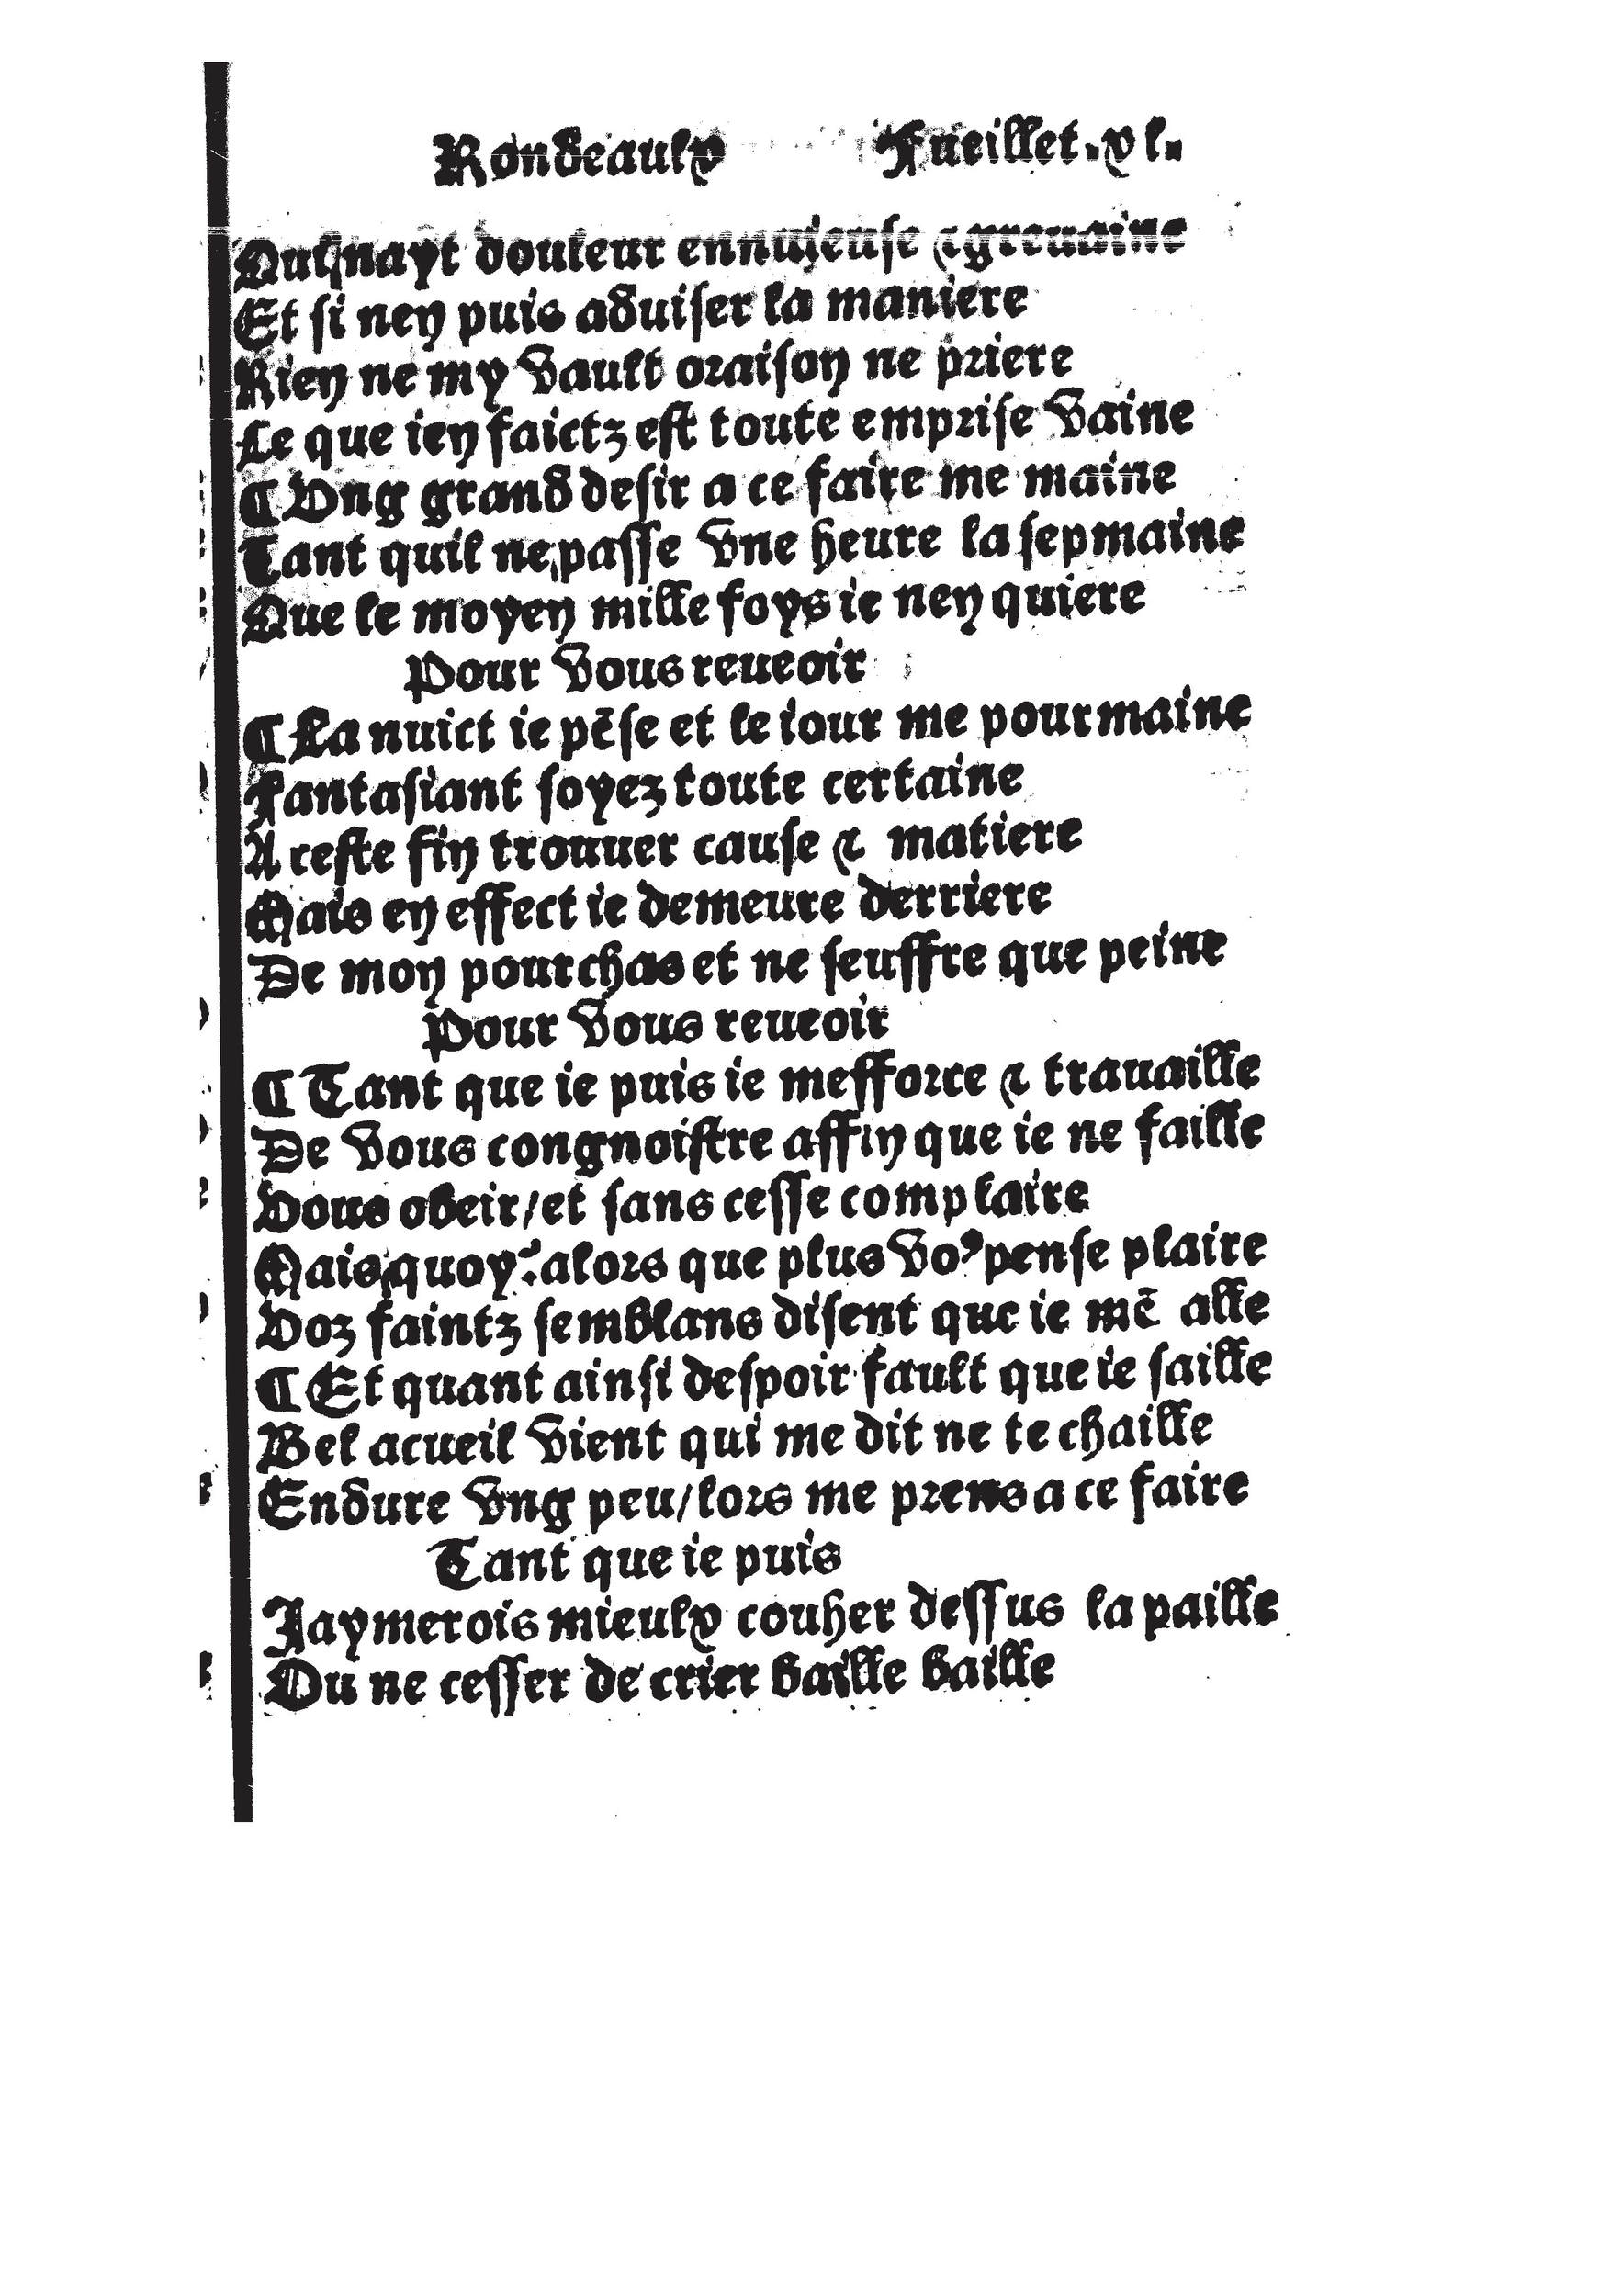 Rondeaulx Fueillet.xl.
Quil nayt douleur ennuieuse & greuaine
Et si nen puis aduiser la maniere
Rien ne my vault oraison ne priere
Ce que ien faictz est toute emprise vaine
¶ Vng grand desir a ce faire me maine
Tant quil ne passe vne heure la sepmaine
Que le moyen mille foys ie nen quiere
Pour vous reueoir
¶ La nuict ie pēse et le iour me pourmaine
Fantasiant soyez toute certaine
A ceste fin trouuer cause & matiere
Mais en effect ie demeure derriere
De mon pourchas et ne seuffre que peine
Pour vous reueoir
¶ Tant que ie puis ie mefforce & trauaille
De vous congnoistre affin que ie ne faille
Vous obeir/et sans cesse complaire
Mais quoy? alors que plus voꝰ pense plaire
Voz faintz semblans disent que ie mē alle
¶ Et quant ainsi despoir fault que ie saille
Bel acueil vient qui me dit ne te chaille
Endure vng peu/lors me prens a ce faire
Tant que ie puis
Jaymerois mieulx couher dessus la paille
Ou ne cesser de crier baille baille